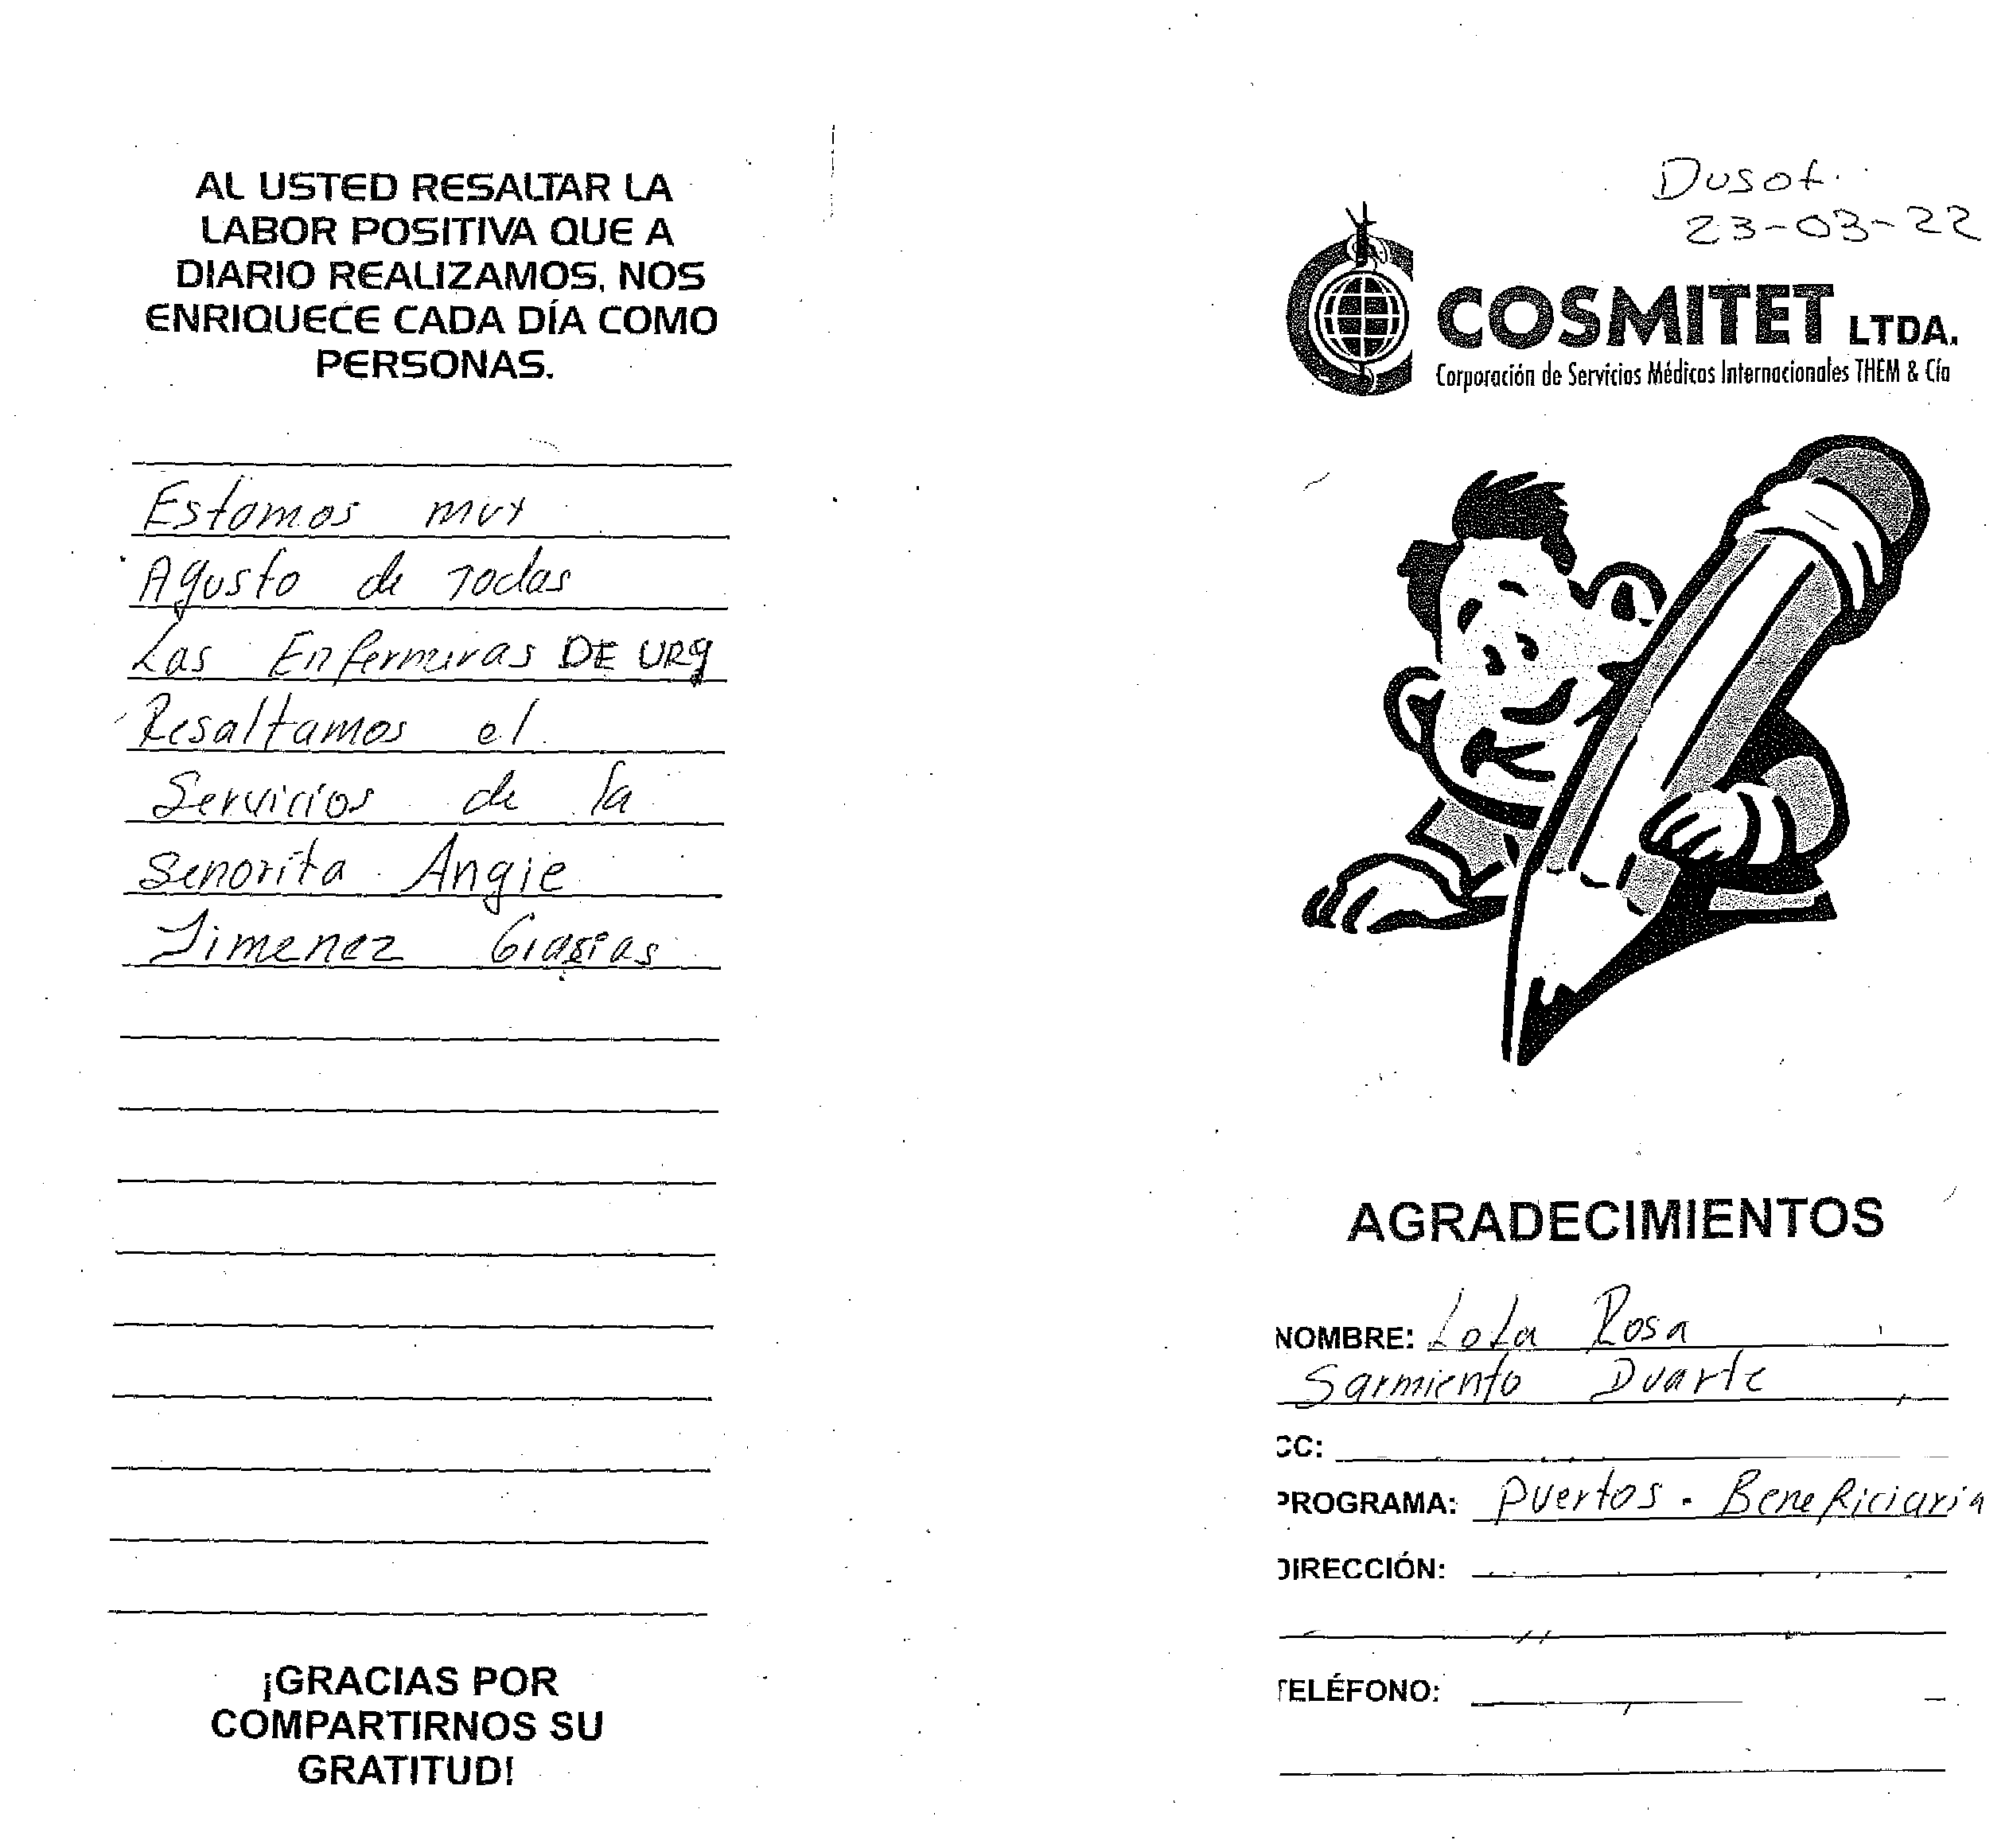 AL USTED RESALTAR LA
LABOR POSITIVA QUE A
DIARIO REALIZAMOS, NOS
ENRIQUECE CADA DÍA COMO
PERSONAS.
Estamos muy
Agusto de Todas
Las Enfermeras DE URg
Resaltamos el
Servicios de la
Señorita Angie
Jimenez Grasias
¡GRACIAS POR
COMPARTIRNOS SU
GRATITUD!
Dusof.
23-03-22
COSMITET LTDA.
Corporación de Servicios Médicos Internacionales THEM & Cía
AGRADECIMIENTOS
NOMBRE: Lola Rosa
Sarmiento Duarte
CC:
PROGRAMA: Puertos. Beneficiaria
DIRECCIÓN:
TELÉFONO: